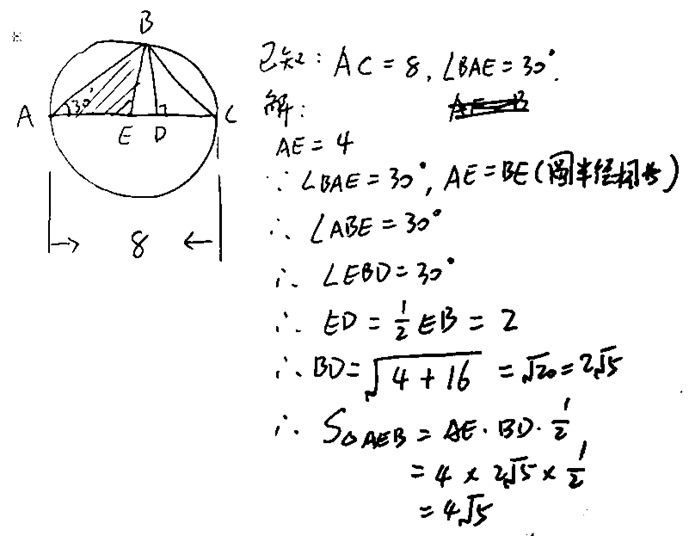 B
A
30°
E
D
C
8
已知: AC = 8, ∠BAE = 30°.
解:
AE = 4
∵ ∠BAE = 30°, AE = BE (圆半径相等)
∴ ∠ABE = 30°
∴ ∠EBD = 30°
∴ ED = \frac{1}{2} EB = 2
∴ BD = √(4 + 16) = √20 = 2√5
∴ S△AEB = AE · BD · \frac{1}{2}
= 4 × 2√5 × \frac{1}{2}
= 4√5